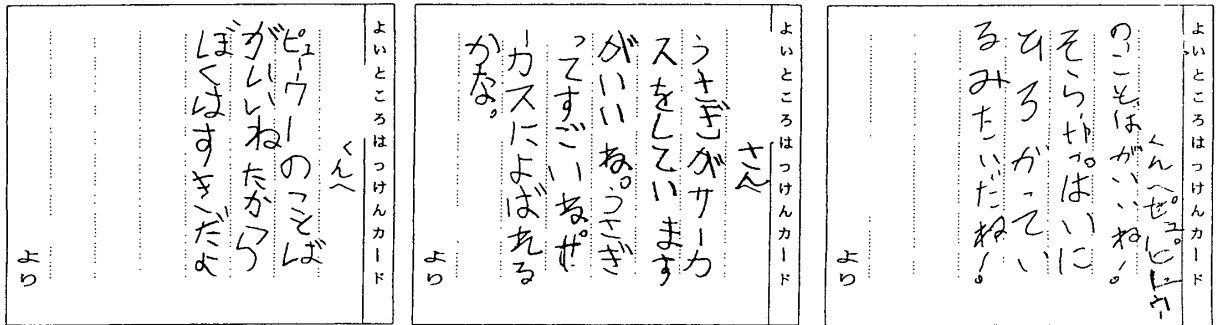 よいところはつけんカード
くんへピュピューウー
のことばがいいね!
そらいっぱいに
ひろがってい
るみたいだね!
より
よいところはつけんカード
さんへ
うさぎがサーカ
スをしています
がいいね。うさぎ
ってすごいね。サ
ーカスによばれる
かな。
より
よいところはつけんカード
くんへ
ピューウーのことば
がいいねたから
ぼくはすきだよ
より